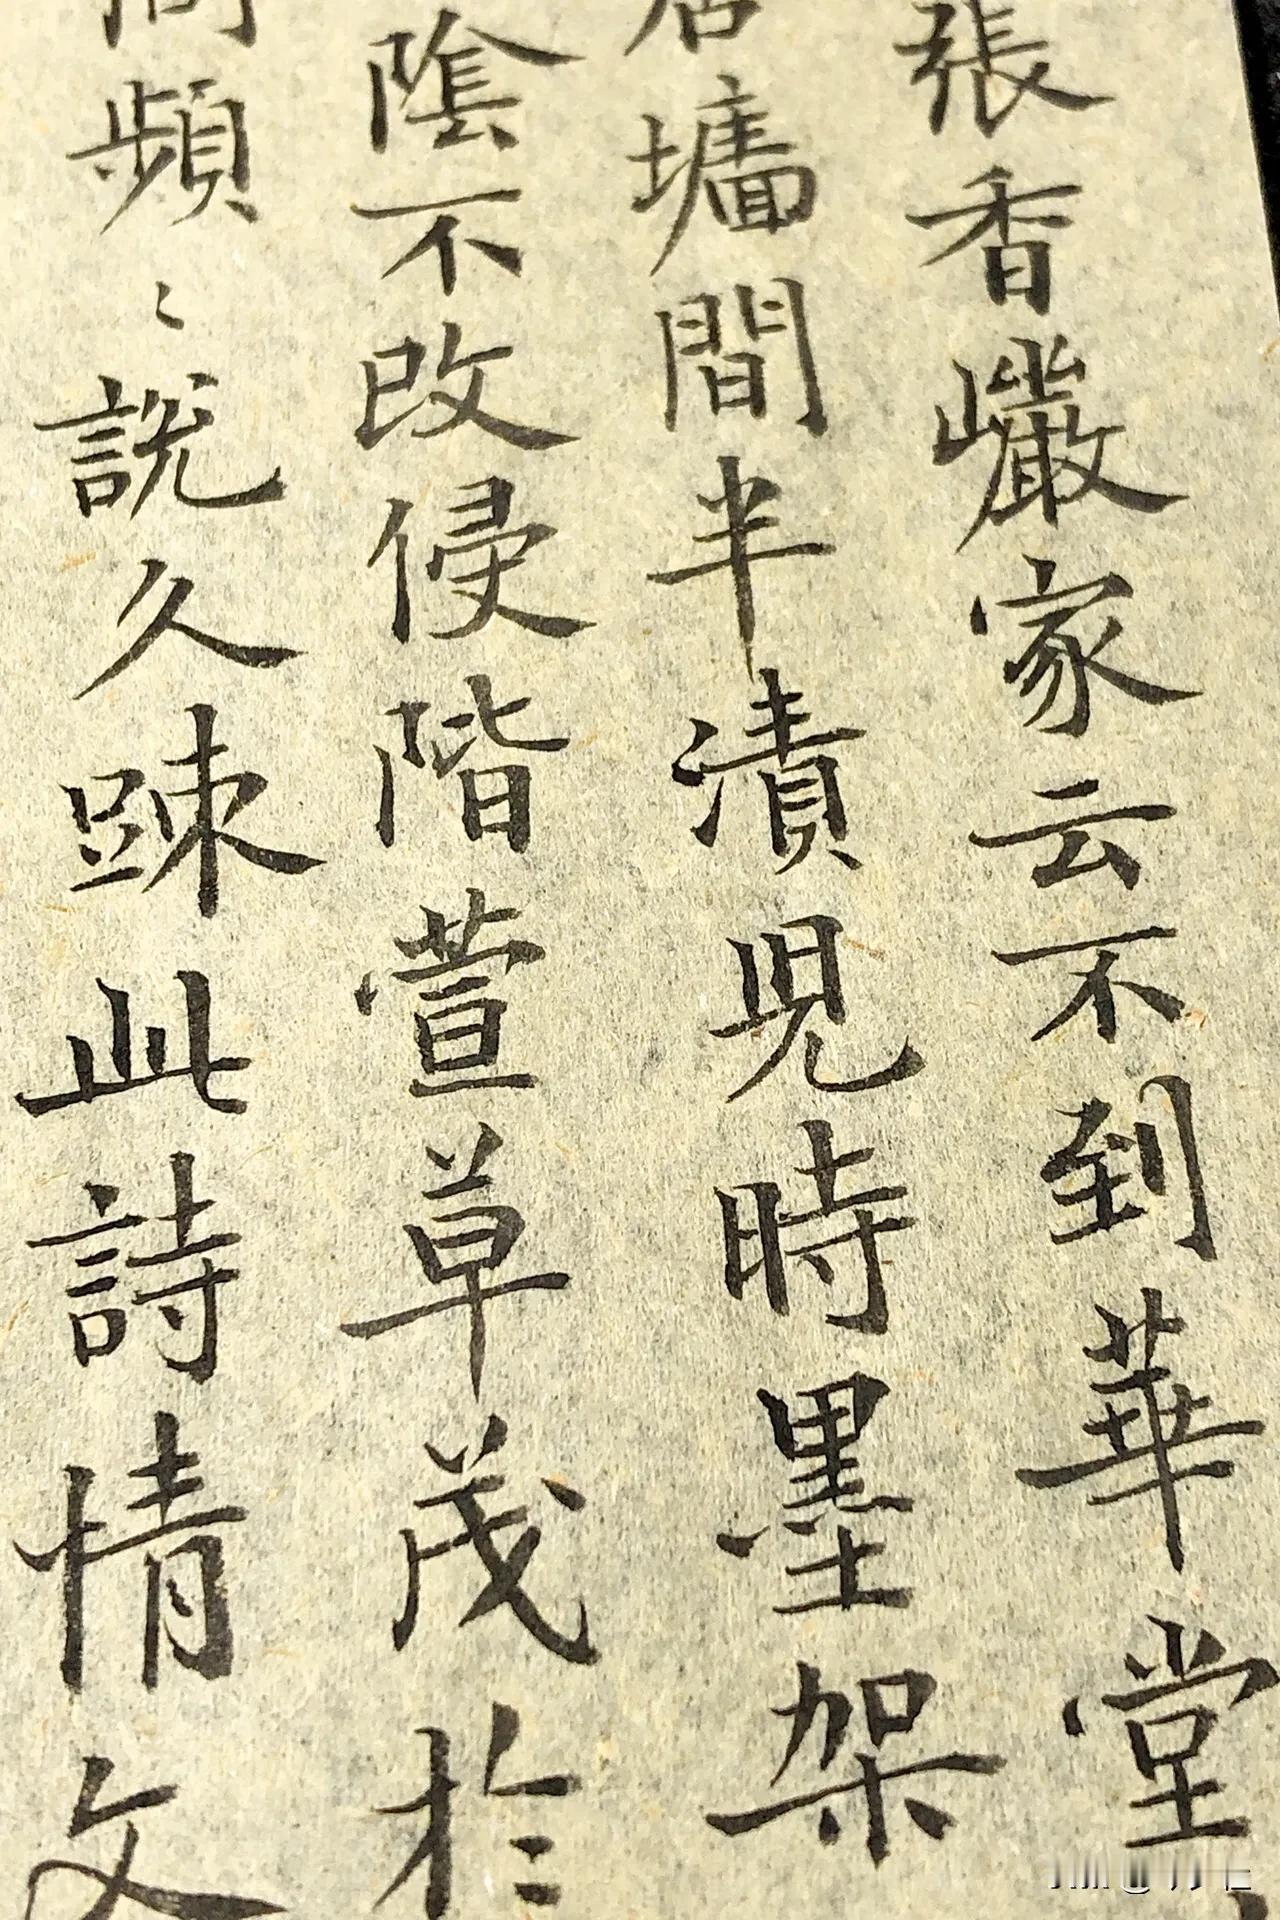 張香巖家云不到華堂
墻間半漬兒時墨架
陰不改侵階萱草茂於
頻〻說久踈此詩情文